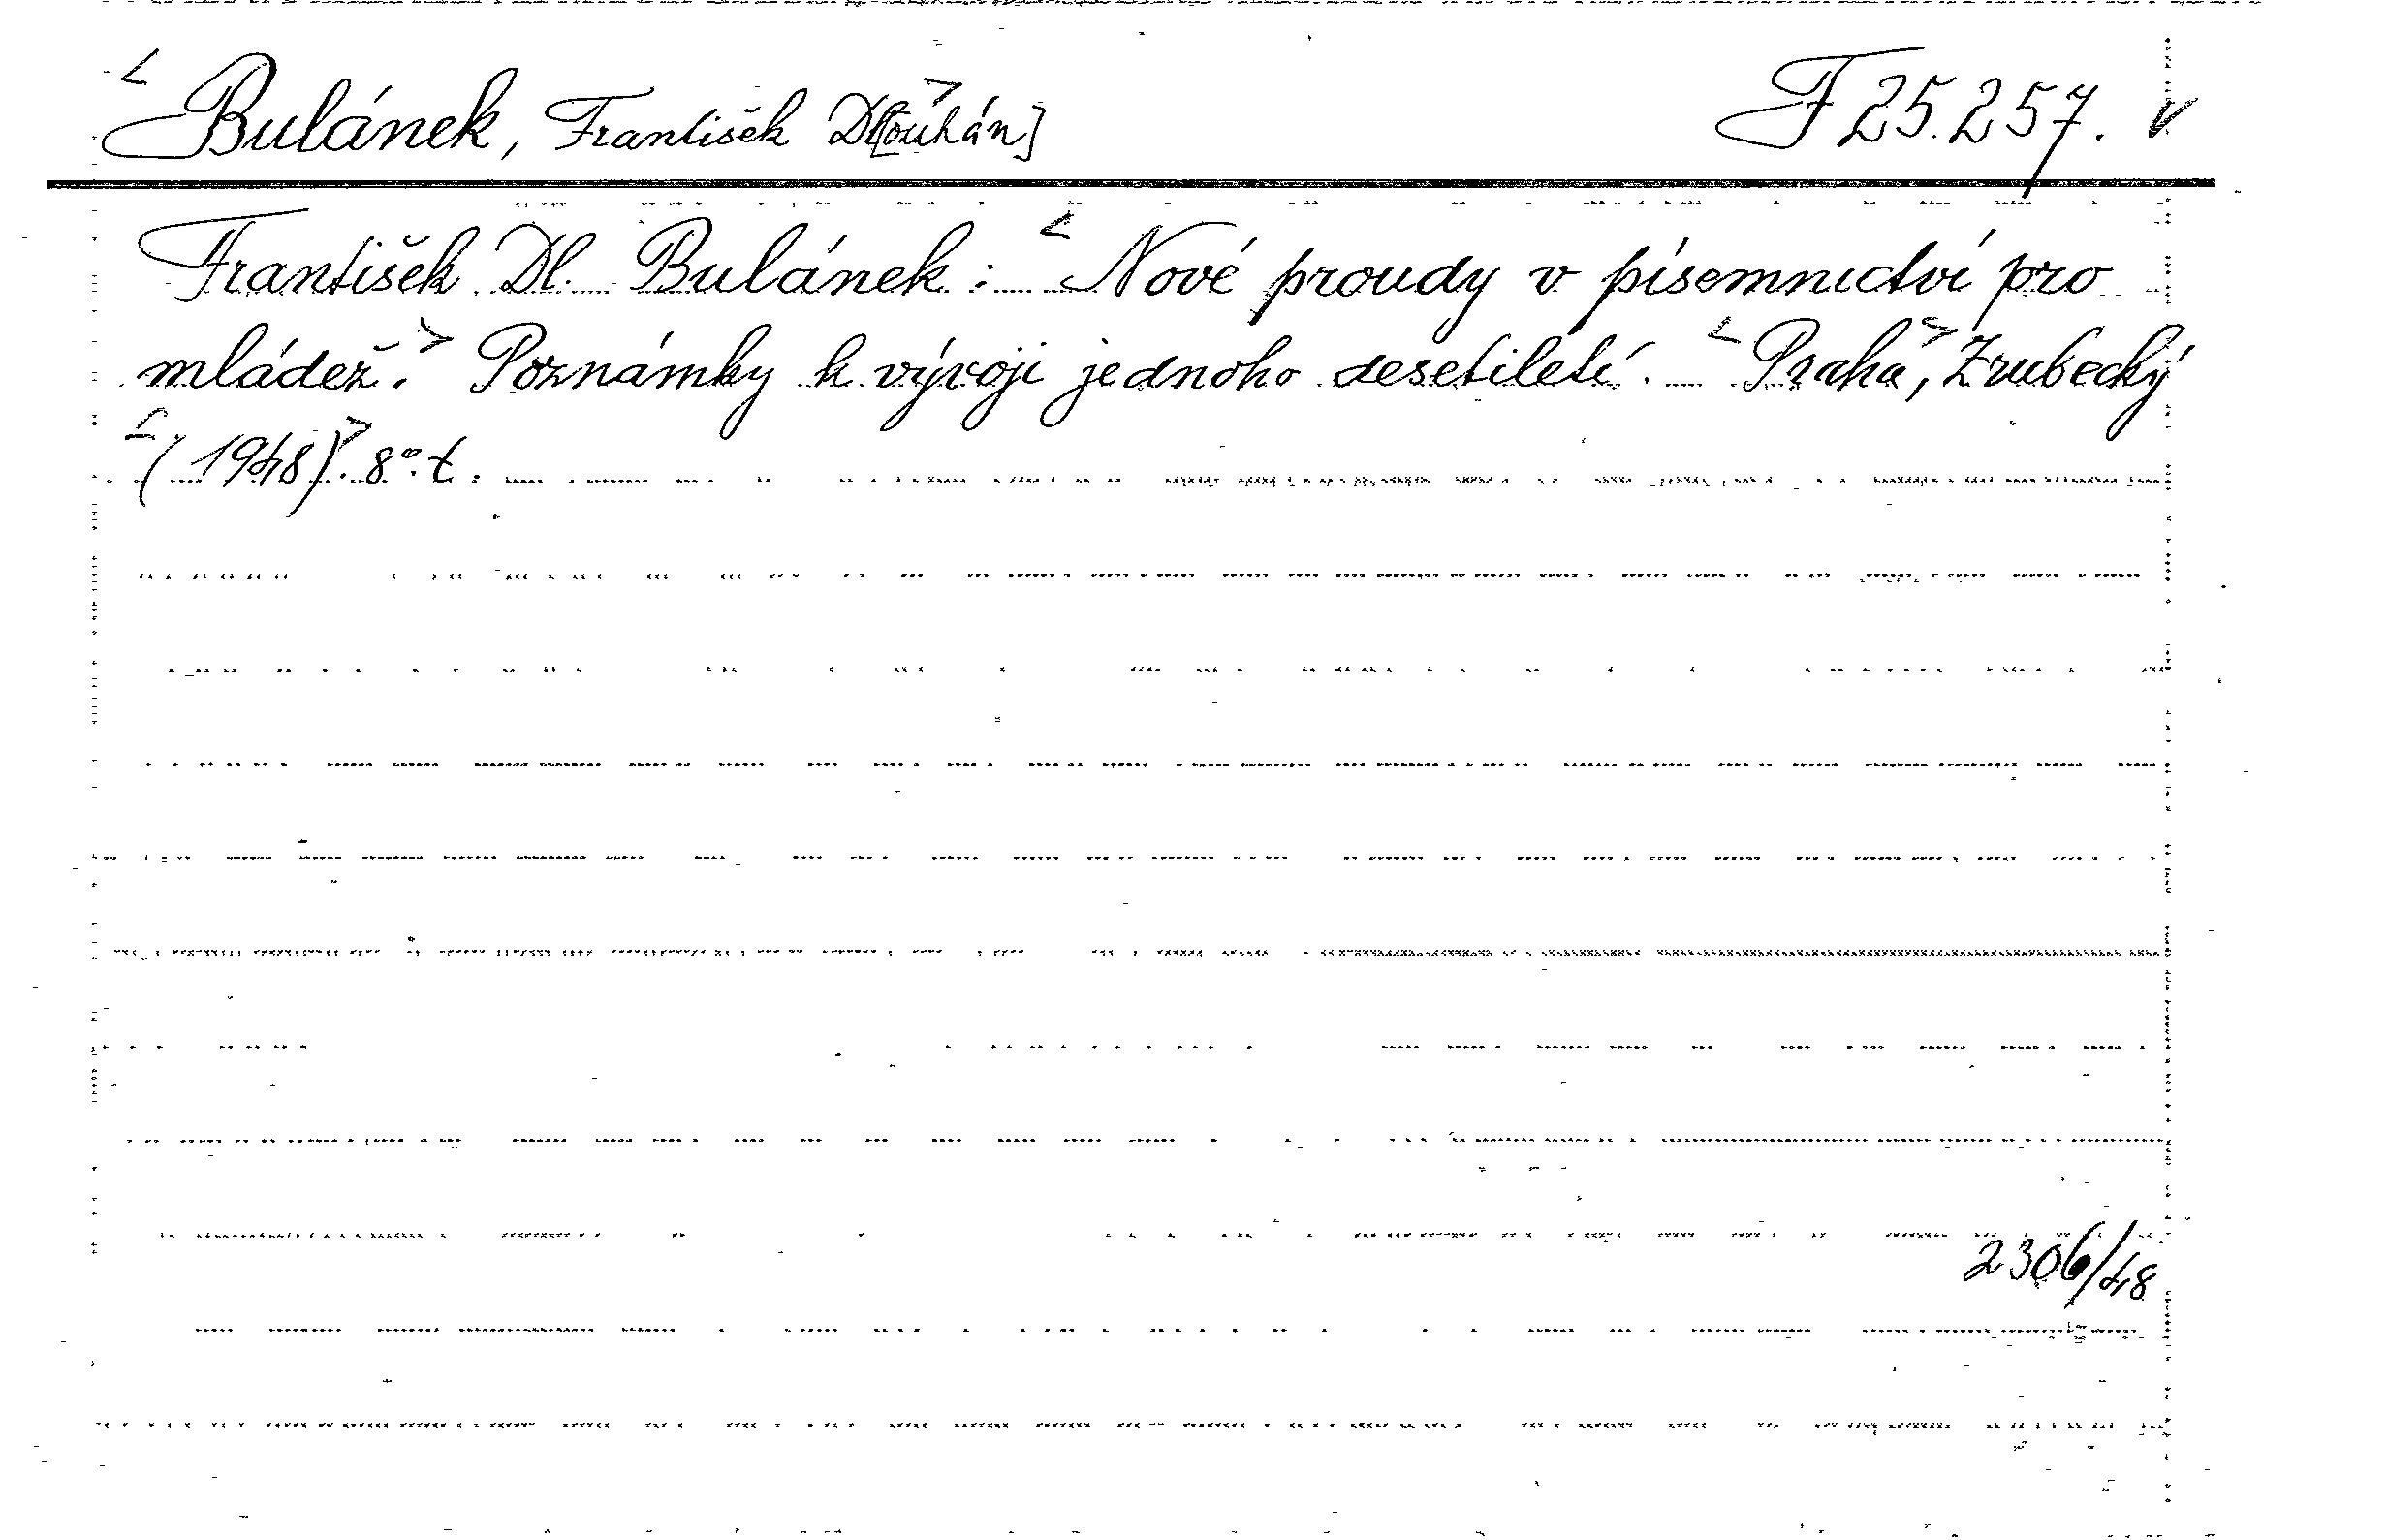 Bulánek, František Dl[ouhán] F 25.257. v
František Dl. Bulánek: Nové proudy v písemnictví pro
mládež. Poznámky k vývoji jednoho desetiletí. Praha, Zrubecký
(1948). 8°. t.
2306/48